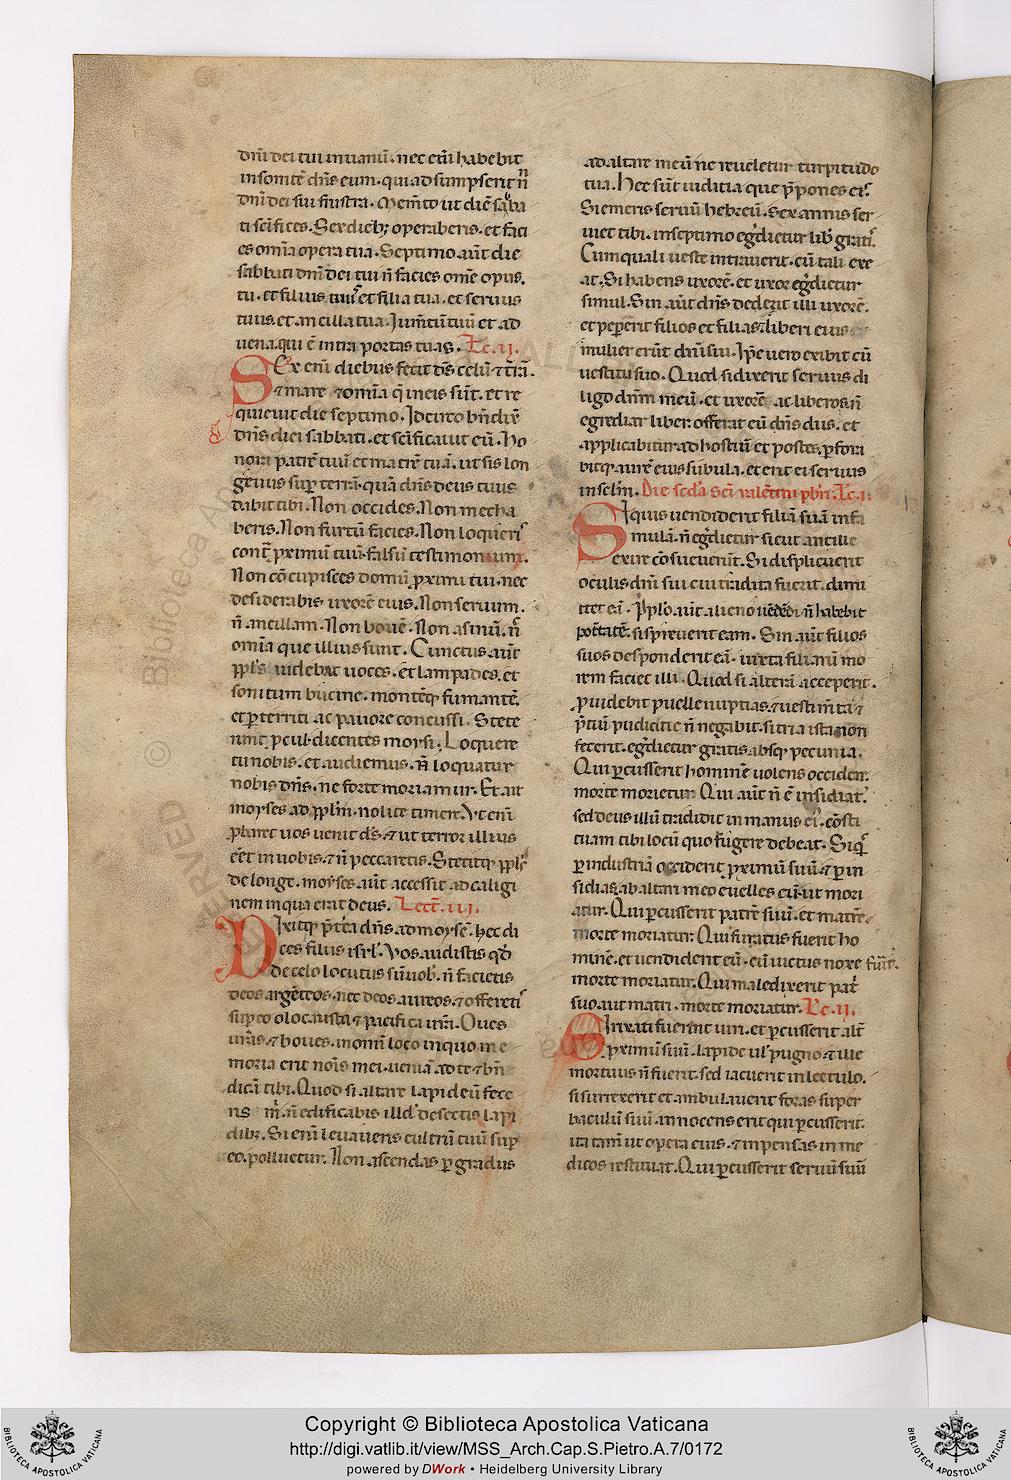 dn̄i dei tui in uanū. nec eni᷑ habebit
insontē dn̄s eum. qui adsumpserit n̄
dn̄i dei sui frustra. Mem̄to ut diē saƀa
ti sc̄ifices. Sex dieb; operaberis. et faci
es om̄ia opera tua. Septimo aūt die
sabbati dn̄i dei tui n̄ facies om̄e opus.
tu. et filius tuus et filia tua. et seruus
tuus. et ancilla tua. Iumtū tuū et ad
uena. qui ē intra portas tuas. Lc. ij.
Sex eni᷑ diebus fecit d̄s celū ⁊ t̄rā.
⁊ mare. ⁊ om̄ia q̄ in eis sūt. et re
quieuit die septimo. Idcirco bn̄dix̄
dn̄s diei sabbati. et sc̄ificauit eū. Ho
nora patrē tuū et matrē tuā. ut sis lon
geuus sup̄ terrā. quā dn̄s deus tuus
dabit tibi. Non occides. Non mecha
beris. Non furtū facies. Non loqueris
cont̄ proximū tuū falsū testimonium.
Non cōcupisces domū proximi tui. nec
desiderabis uxorē eius. Non seruum.
n̄ ancillam. Non bouē. Non asinū. n̄
om̄ia que illius sunt. Cunctus aūt
ppl̄s uidebat uoces. et lampades. et
sonitum bucine. montēq; fumantē.
et p̱territi ac pauore concussi. Stete
runt p̱cul. dicentes moysi. Loquere
tu nobis. et audiemus. n̄ loquatur
nobis dn̄s. ne forte moriamur. Et ait
moyses ad ppl̄m. nolite timere. Ut eni᷑
p̱baret uos uenit d̄s. ⁊ ut terror illius
eēt in uobis. ⁊ n̄ peccaretis. Stetitq; ppl̄s
de longe. moyses aūt accessit ad caligi
nem in qua erat deus. Lect̄. iij.
Dixitq; p̄t̄ea dn̄s ad moysē. hec di
ces filiis isrl̄. Vos audistis qđ
de celo locutus sū uob̄. n̄ facietis
deos argēteos. nec deos aureos. ⁊ offeretis
sup̄ eo olocausta ⁊ pacifica ur̄a. Oues
ur̄as. ⁊ boues. in om̄i loco in quo me
moria erit nōis mei. ueniā ad te ⁊ bn̄
dicā tibi. Quod si altare lapideū fece
ris m̄. n̄ edificabis illđ de sectis lapi
dib;. Si eni᷑ leuaueris cultrū tuū sup̄
eo. polluetur. Non ascendas p̱ gradus
ad altare meū ne reueletur turpitudo
tua. Hec sūt iuditia que p̄pones eis.
Si emeris seruū hebreū. Sex annis ser
uiet tibi. in septimo eḡdietur lib̄ gratis.
Cum quali ueste intrauerit. cū tali exe
at. Si habens uxorē. et uxor eḡdietur
simul. Sin aūt dn̄s dederit illi uxorē.
et pepererit filios et filias. ⁊ liberi eius
mulier erūt dn̄i sui. Ipse uero exibit cū
uestitu suo. Quod si dixerit seruus di
ligo dn̄m meū. et uxorē ac liberos. n̄
egrediar liber. offerat eū dn̄s diis. et
applicabitur ad hostiū et postes. p̱fora
bitq; aurē eius subula. et erit ei seruus
in secl̄m. Die sc̄da sc̄i ualētini pb̄ri. Lc. i.
Si quis uendiderit filiā suā in fa
mulā. n̄ eḡdietur sicut ancille
exire cōsueuerūt. Si displicuerit
oculis dn̄i sui cui tradita fuerit. dimi
ttet eā. Ppl̄o aūt alieno uēdēdi n̄ habebit
potestatē. si spreuerit eam. Sin aūt filios
suos desponderit eā. iuxta filiarū mo
rem faciet illi. Quod si alterā acceperit.
p̱uidebit puelle nuptias. ⁊ uestimta ⁊
p̄tiū pudicitie n̄ negabit. si tria ista non
fecerit. eḡdietur gratis absq; pecunia.
Qui p̱cusserit hominē uolens occidere.
morte morietur. Qui aūt n̄ ē insidiat᷑.
sed deus illū tradidit in manus ei᷑. cōsti
tuam tibi locū quo fugere debeat. Siq̄s
p̱ industriā occiderit proximū suū. ⁊ p̱ in
sidias. ab altari meo euelles eū. ut mori
atur. Qui p̱cusserit patrē suū. et matrē.
morte moriatur. Qui furatus fuerit ho
minē. et uendiderit eū. cūuictus noxe fūit.
morte moriatur. Qui maledixerit pat̄
suo. aut matri. morte moriatur. Lc. ij.
Si rixati fuerint uiri. et p̱cusserit alt̄
proximū suū. lapide ul̄ pugno. ⁊ ille
mortuus n̄ fuerit. sed iacuerit in lectulo.
si surrexerit et ambulauerit foras super
baculū suū. innocens erit qui p̱cusserit.
ita tam̄ ut opera eius. ⁊ inpensas in me
dicos restituat. Qui p̱cusserit seruū suū
Copyright © Biblioteca Apostolica Vaticana
http://digi.vatlib.it/view/MSS_Arch.Cap.S.Pietro.A.7/0172
powered by DWork • Heidelberg University Library
BIBLIOTECA APOSTOLICA VATICANA
BIBLIOTECA APOSTOLICA VATICANA